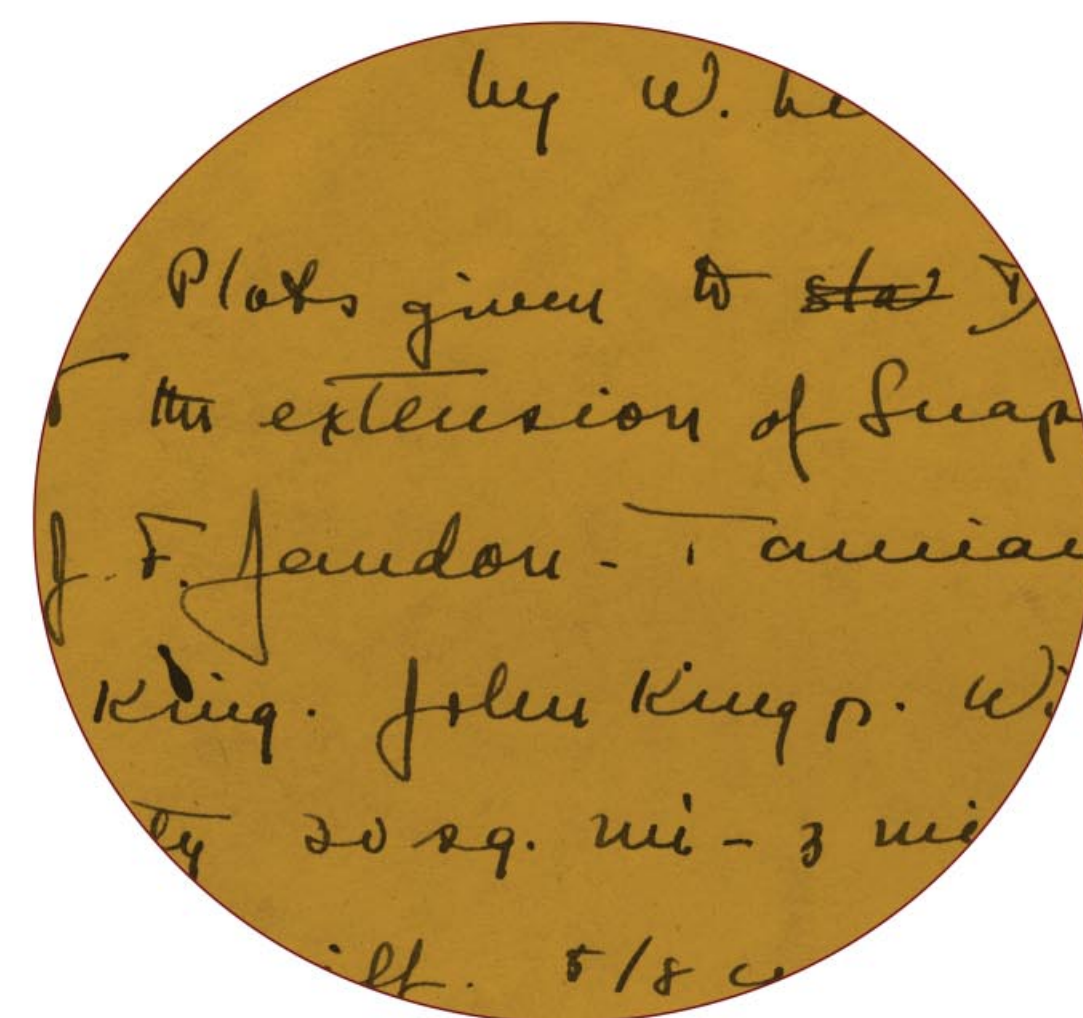 by W.
Plots given to sta
the extension of Snap
J. F. Jaudon - Tamiam
King. John King p. W.
ty 30 sq. mi - 3 mi
5/8